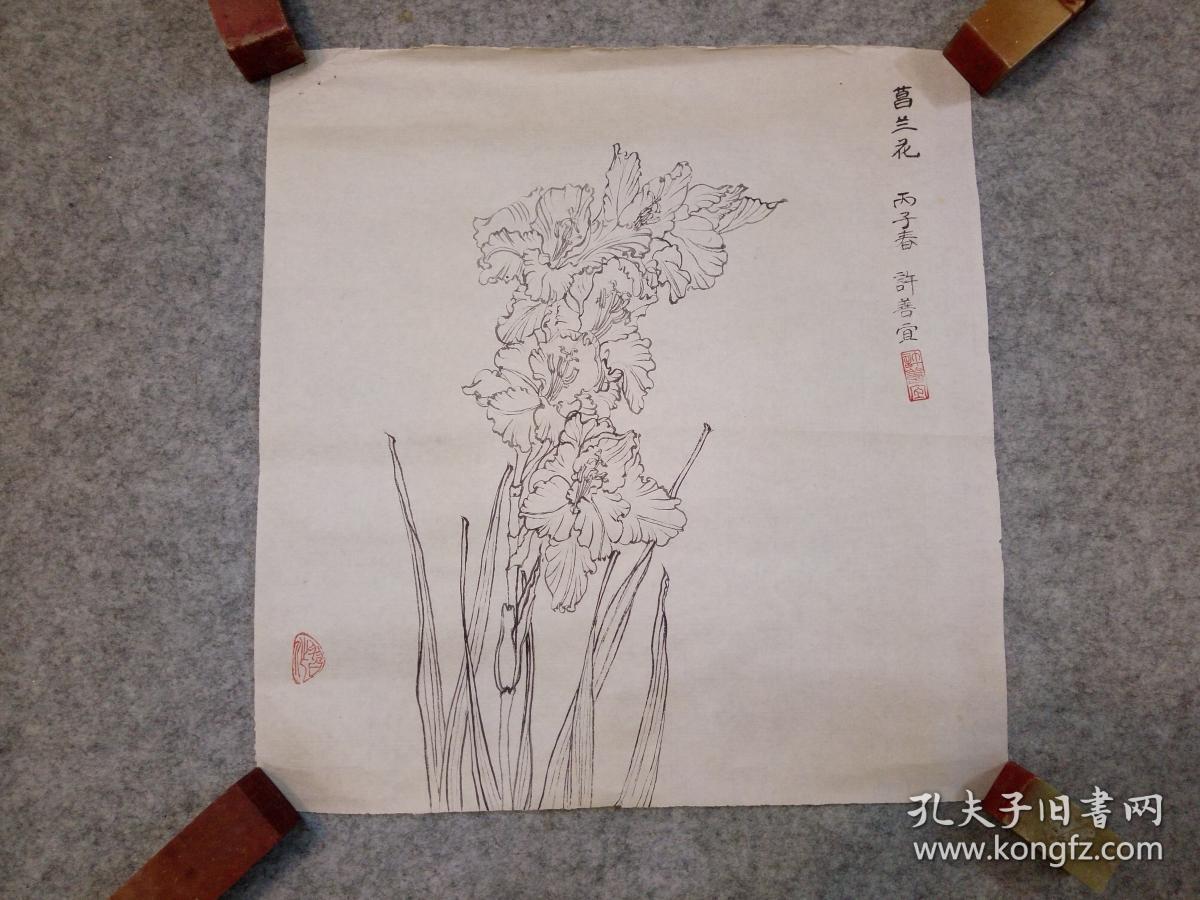 菖兰花 丙子春 許善宜
孔夫子旧書网
www.kongfz.com